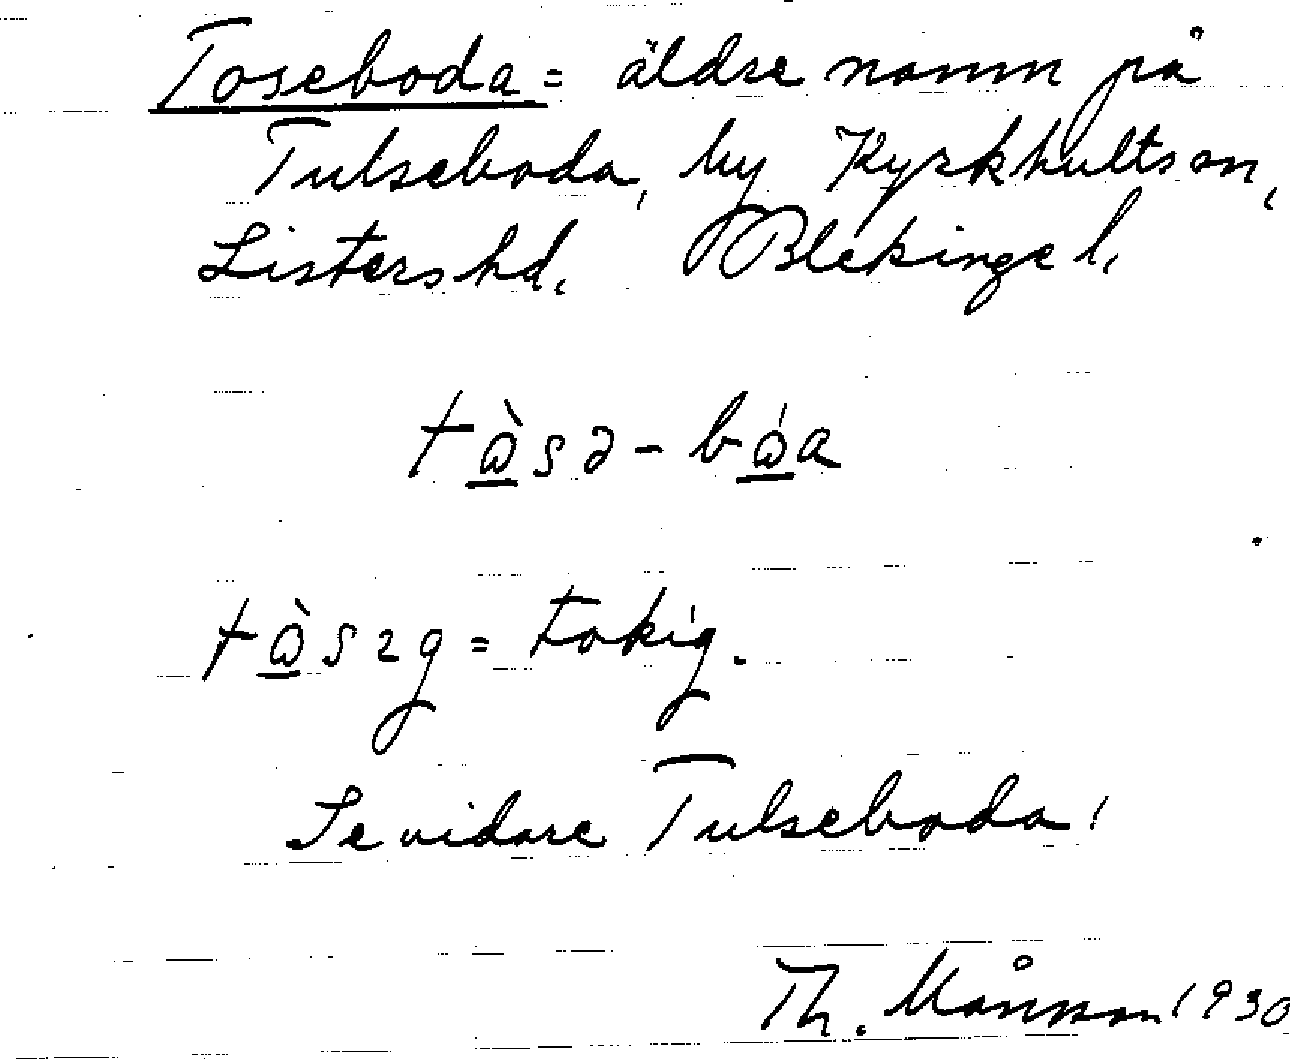 Toseboda = äldre namn på
Tulseboda, by Kyrkhults sn,
Listers hd. Blekinge l.
tὼ̲sə - bώ̲a
tὼ̲sıg = tokig.
Se vidare Tulseboda!
Th. Månsson 1930